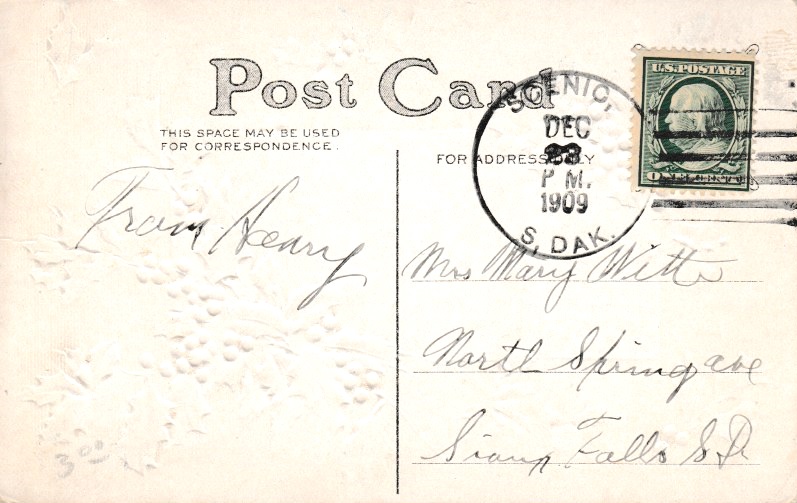 Post Card
THIS SPACE MAY BE USED
FOR CORRESPONDENCE.
FOR ADDRESS ONLY
SCENIC,
DEC
P M.
1909
S, DAK.
U.S. POSTAGE
ONE CENT
From Henry
Mrs Mary Witte
North Spring ave
Sioux Falls S D
3.00